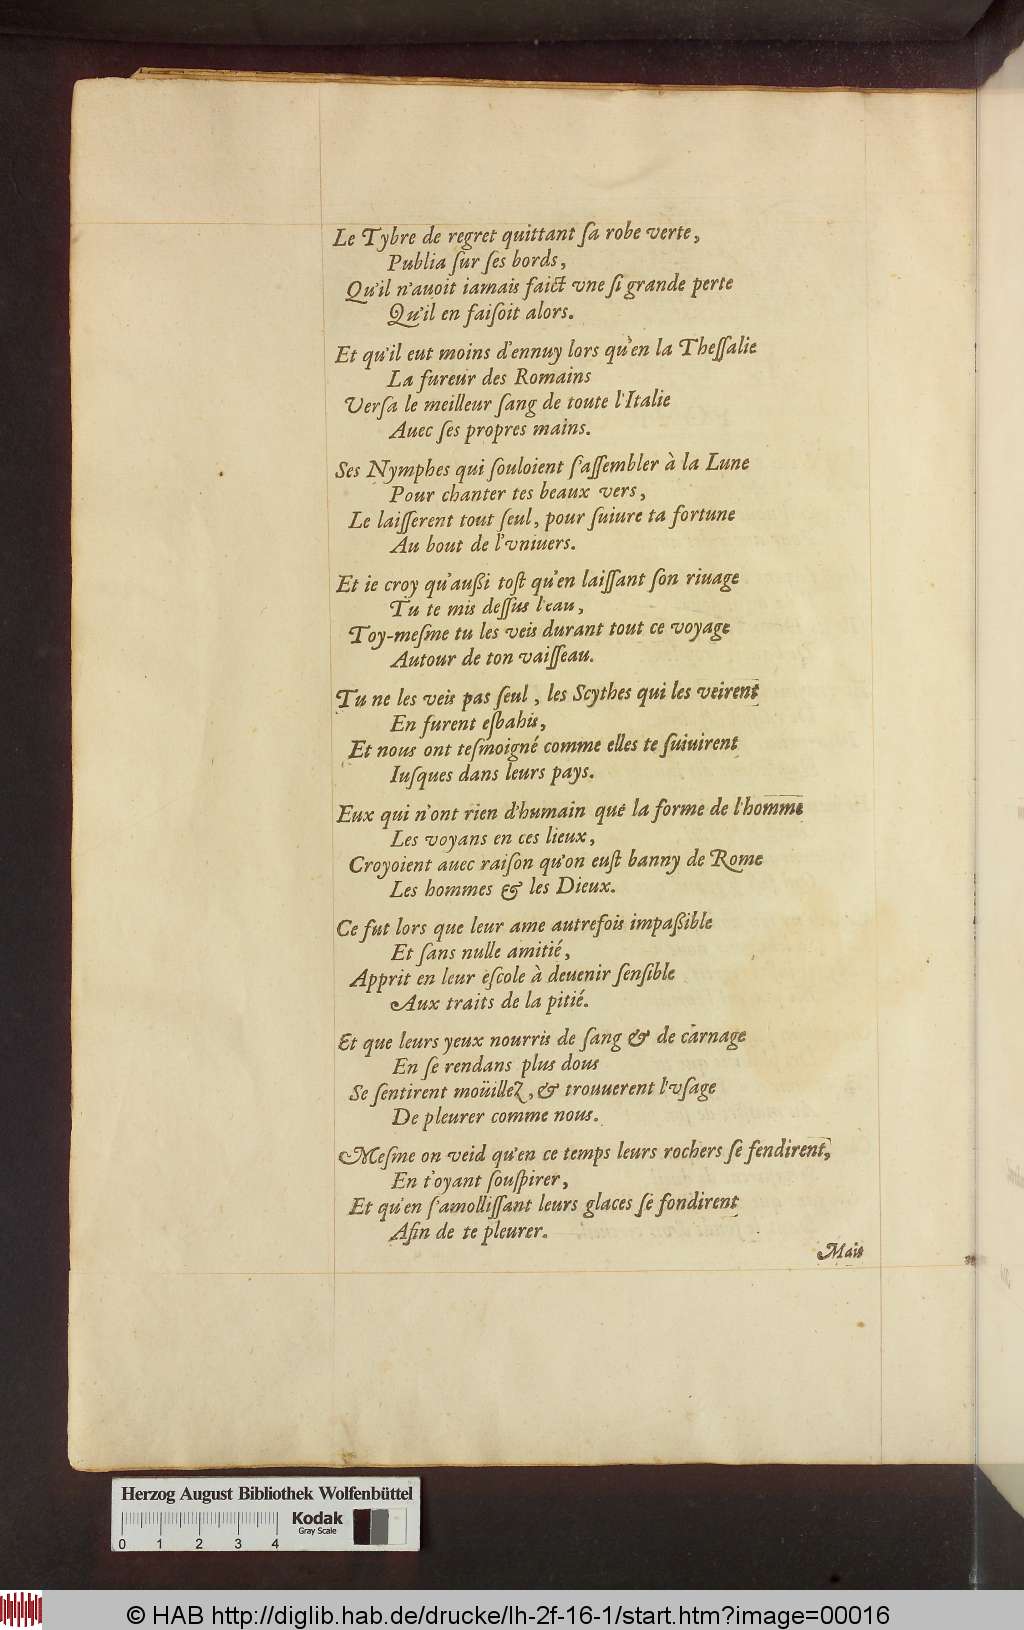 Le Tybre de regret quittant ſa robe verte,
Publia ſur ſes bords,
Qu'il n'auoit iamais faict vne ſi grande perte
Qu'il en faiſoit alors.
Et qu'il eut moins d'ennuy lors qu'en la Theſſalie
La fureur des Romains
Verſa le meilleur ſang de toute l'Italie
Auec ſes propres mains.
Ses Nymphes qui ſouloient ſ'aſſembler à la Lune
Pour chanter tes beaux vers,
Le laiſſerent tout ſeul, pour ſuiure ta fortune
Au bout de l'vniuers.
Et ie croy qu'außi toſt qu'en laiſſant ſon riuage
Tu te mis deſſus l'eau,
Toy-meſme tu les veis durant tout ce voyage
Autour de ton vaiſſeau.
Tu ne les veis pas ſeul, les Scythes qui les veirent
En furent eſbahis,
Et nous ont teſmoigné comme elles te ſuiuirent
Iuſques dans leurs pays.
Eux qui n'ont rien d'humain que la forme de l'homme
Les voyans en ces lieux,
Croyoient auec raiſon qu'on euſt banny de Rome
Les hommes & les Dieux.
Ce fut lors que leur ame autrefois impaßible
Et ſans nulle amitié,
Apprit en leur eſcole à deuenir ſenſible
Aux traits de la pitié.
Et que leurs yeux nourris de ſang & de carnage
En ſe rendans plus dous
Se ſentirent moüillez, & trouuerent l'vſage
De pleurer comme nous.
Meſme on veid qu'en ce temps leurs rochers ſe fendirent,
En t'oyant ſouſpirer,
Et qu'en ſ'amolliſſant leurs glaces ſe fondirent
Afin de te pleurer.
Mais
Herzog August Bibliothek Wolfenbüttel
Kodak
Gray Scale
0 1 2 3 4
© HAB http://diglib.hab.de/drucke/lh-2f-16-1/start.htm?image=00016